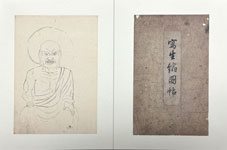 寫生縮圖帖